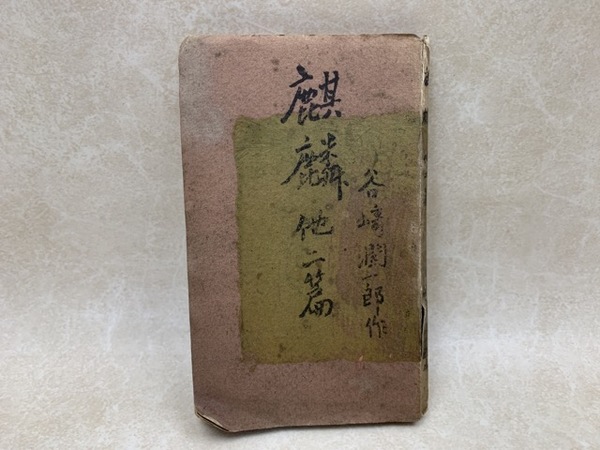 麒麟他二篇
谷崎潤一郎作